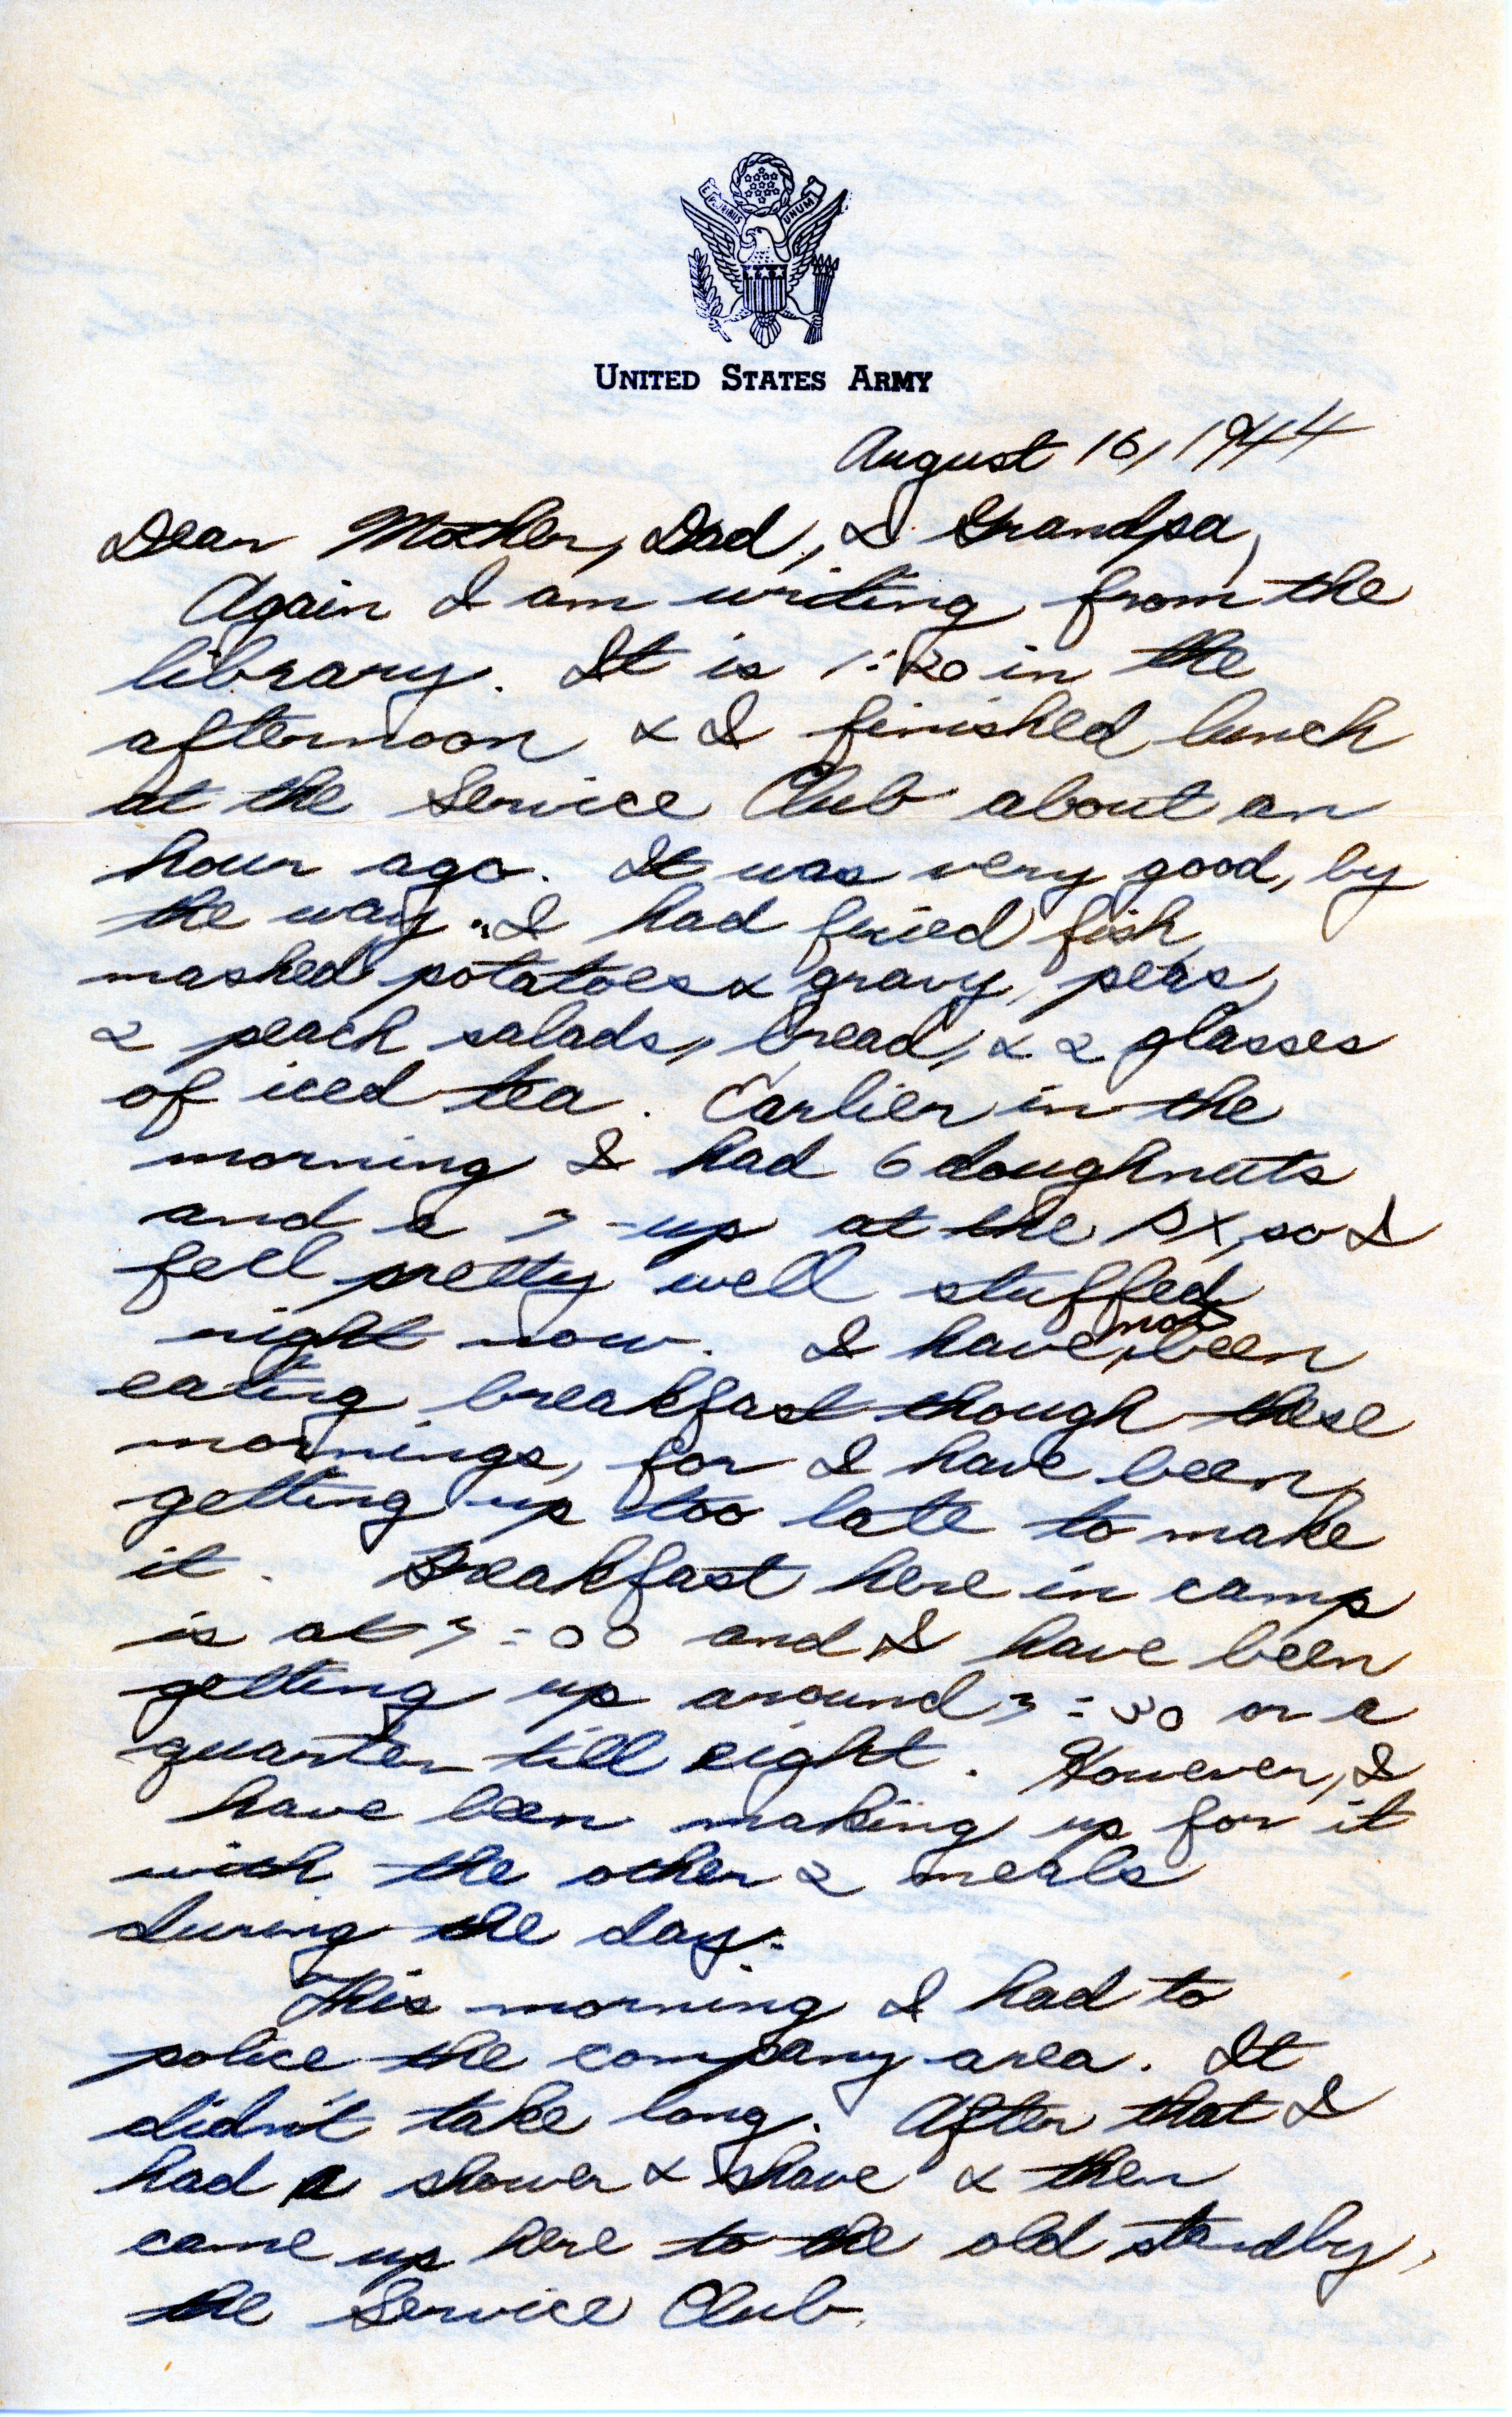 E PLURIBUS UNUM
UNITED STATES ARMY
August 16, 1944
Dear Mother, Dad, & Grandpa,
Again I am writing from the
library. It is 1:20 in the
afternoon & I finished lunch
at the Service Club about an
hour ago. It was very good, by
the way. I had fried fish,
mashed potatoes & gravy, peas,
2 peach salads, bread, & 2 glasses
of iced tea. Earlier in the
morning I had 6 doughnuts
and a 7-up at the PX, so I
feel pretty well stuffed
right now. I have not been
eating breakfast though these
mornings, for I have been
getting up too late to make
it. Breakfast here in camp
is at 7:00 and I have been
getting up around 7:30 or a
quarter till eight. However, I
have been making up for it
with the other 2 meals
during the day.
This morning I had to
police the company area. It
didn't take long. After that I
had a shower & shave & then
came up here to the old standby,
the Service Club.